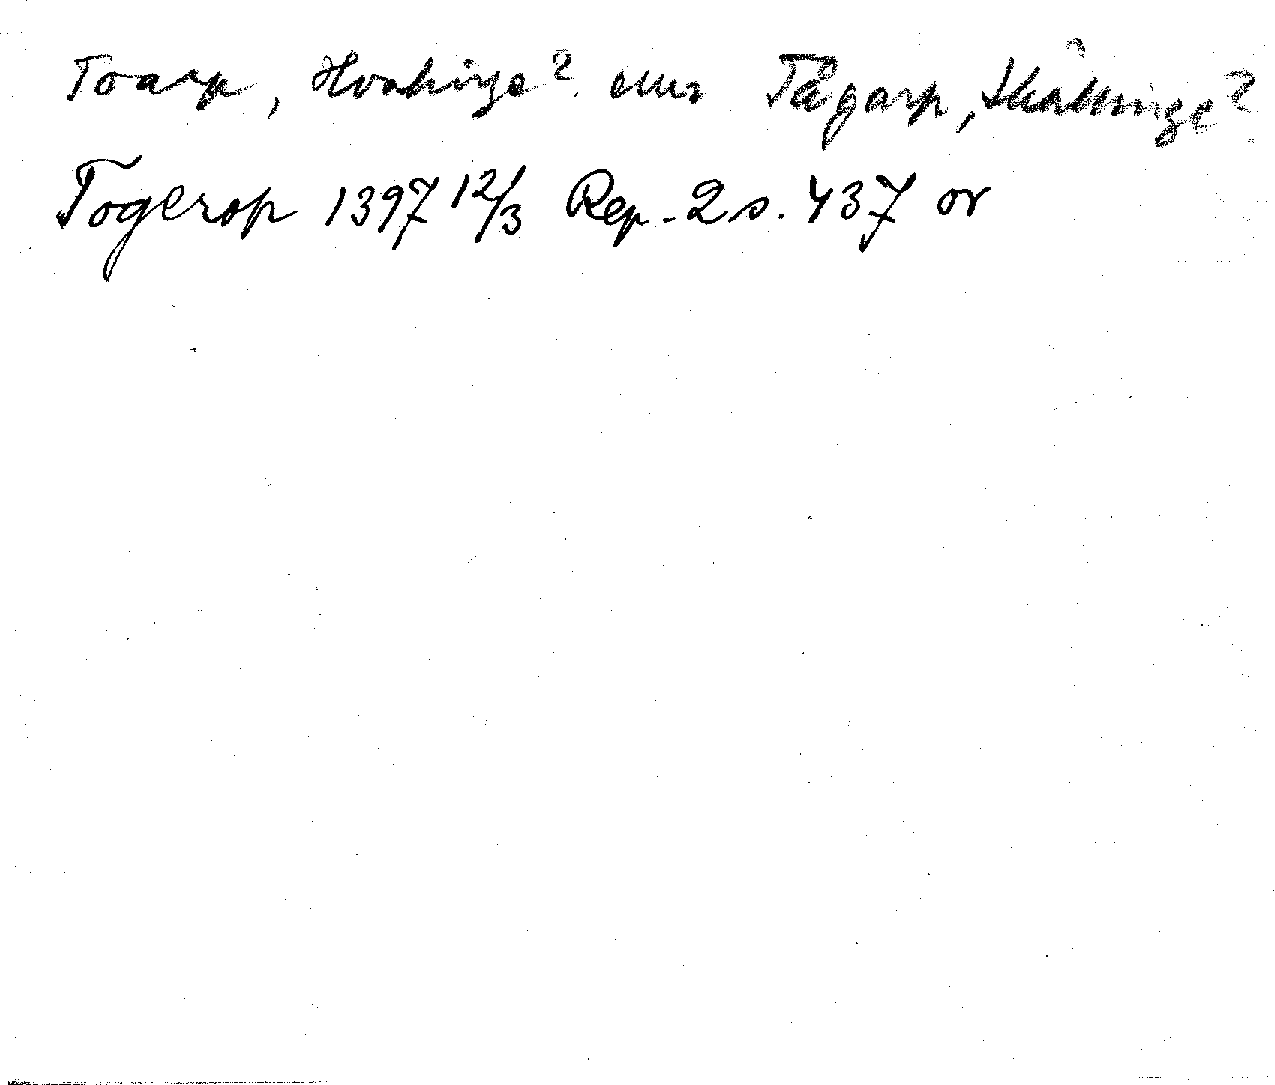 Toarp, Hvahinge? eller Tågarp, Skättinge?
Togerop 1397 12/3 Rep. 2 s. 437 or